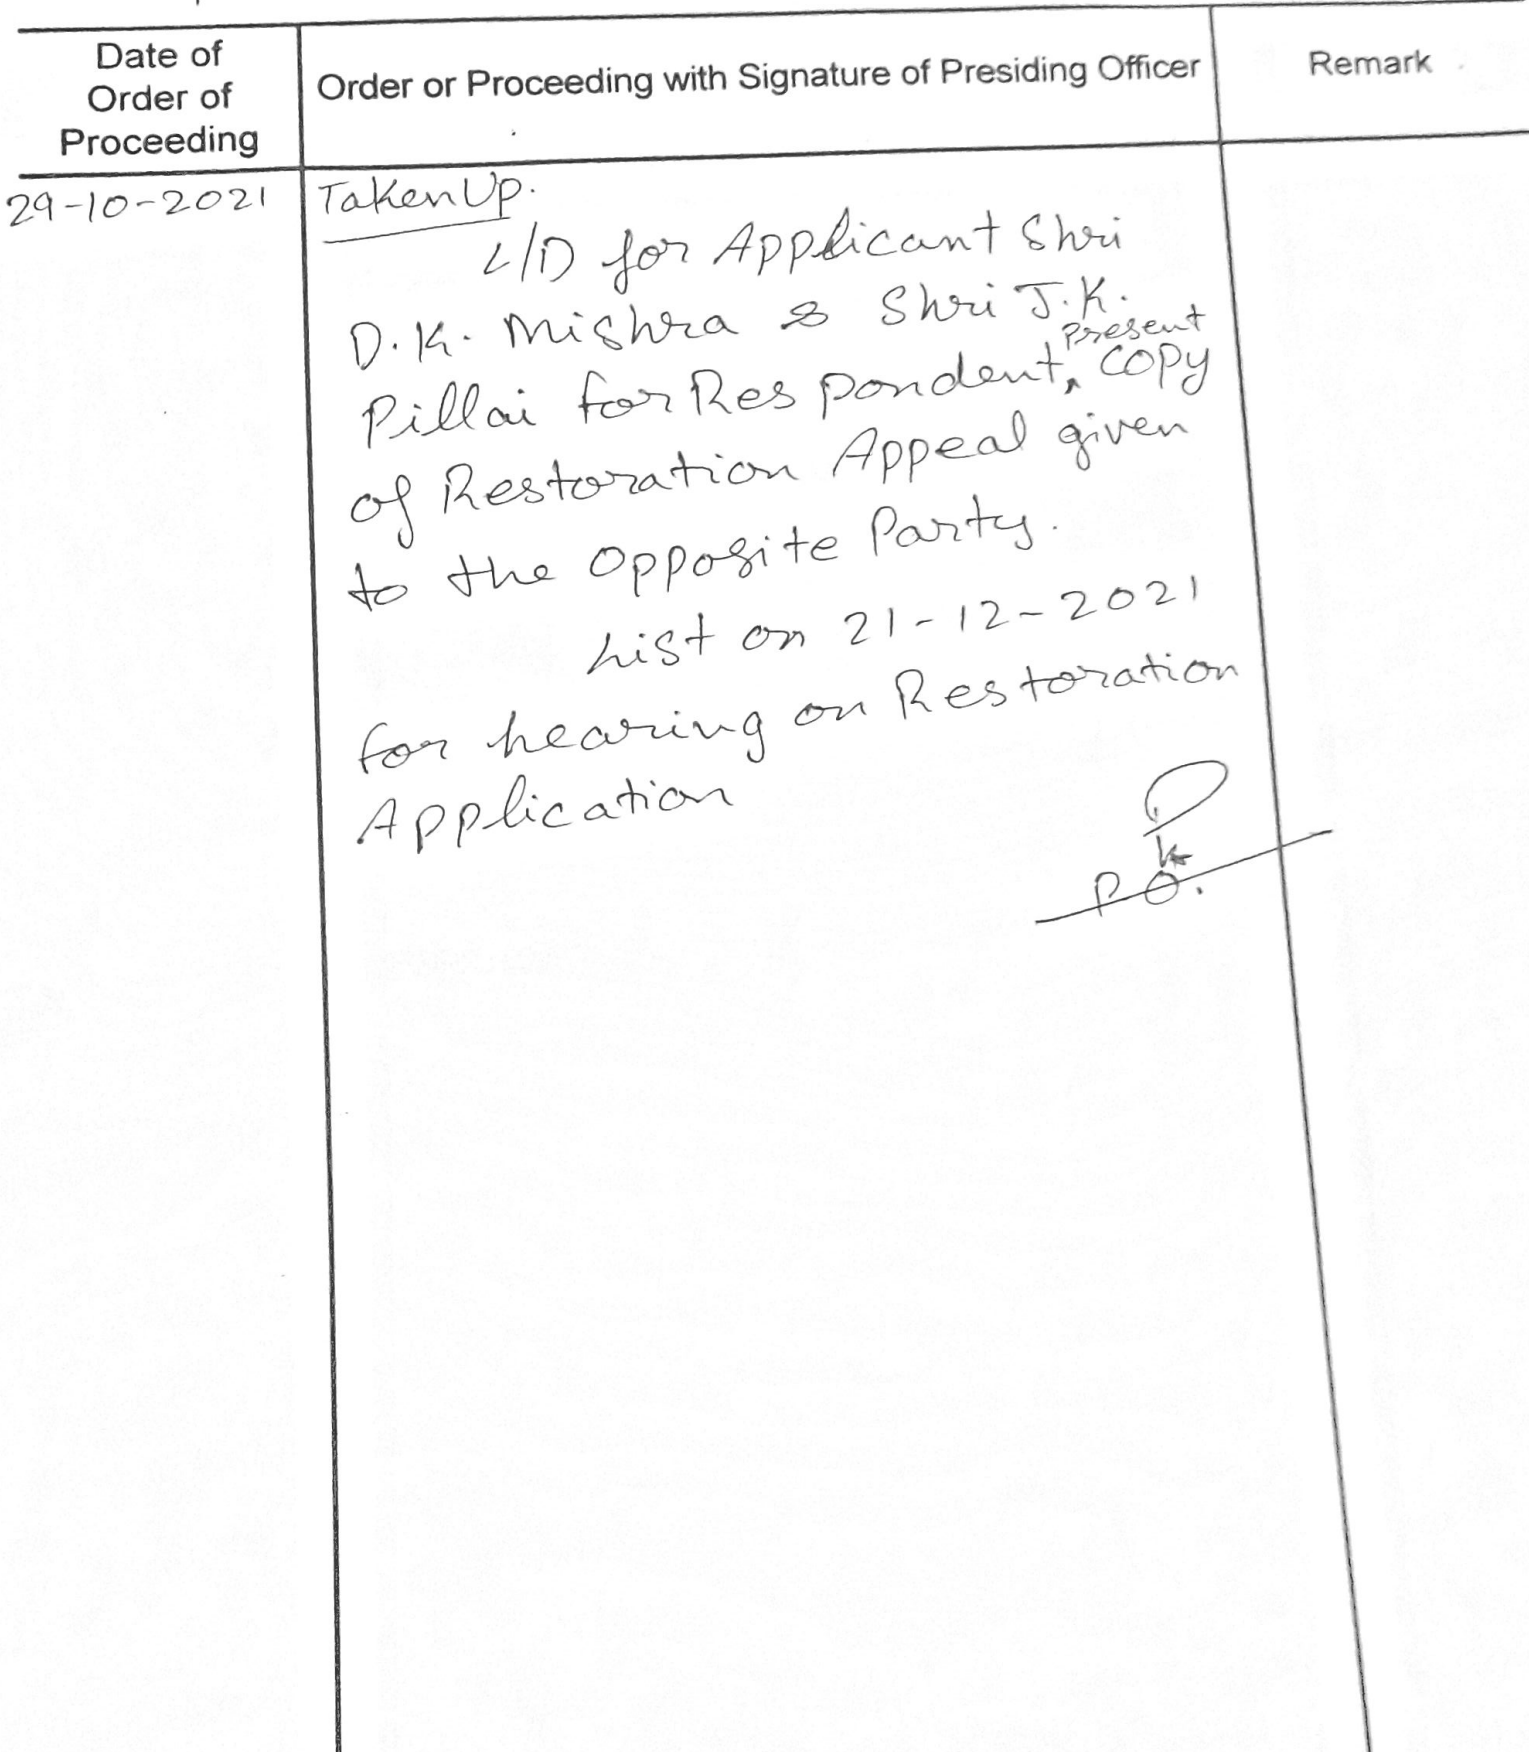 Date of
Order of
Proceeding
Order or Proceeding with Signature of Presiding Officer
Remark
29-10-2021
Taken Up.
L/D for Applicant Shri
D.K. Mishra & Shri J.K.
present
Pillai for Respondent, ^ copy
of Restoration Appeal given
to the Opposite Party.
List on 21-12-2021
for hearing on Restoration
Application
P.O.